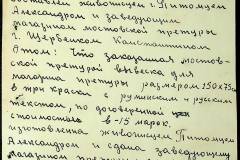 доставлен живописцем г. Питомцем
Александром и заведующим
магазином мостовской претуры
г. Щербенком Константином
о том: Что заказанная мостов-
ской претурой вывеска для
магазина претуры размером 150х75см
в три краски с румынским и русским
текстом, по договоренной
стоимостью в -15 марок.
изготовлена живописцем Питомцем
Александром и сдана заведующему
магазином претуры